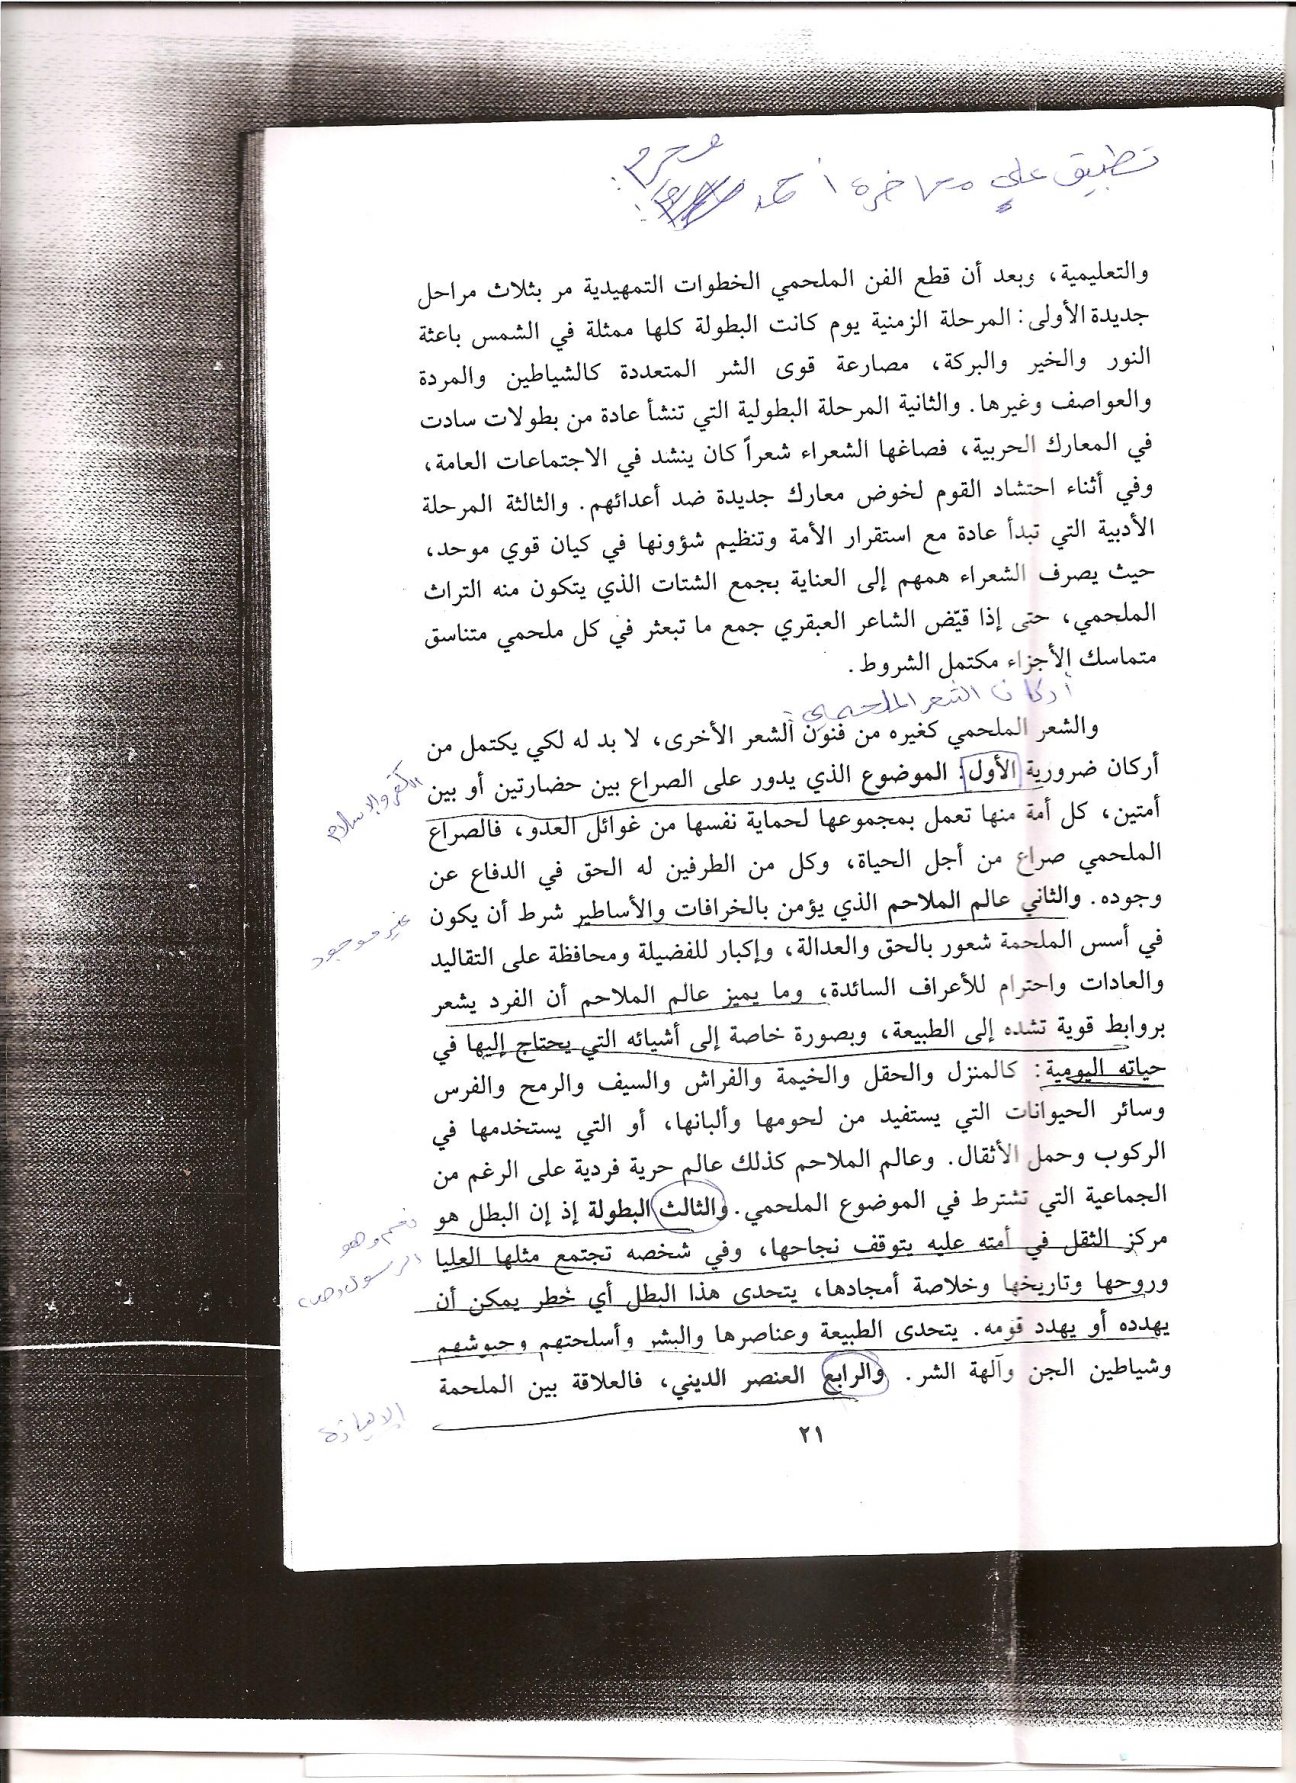 تطبيق على محاضرة أحمد محرم:
والتعليمية، وبعد أن قطع الفن الملحمي الخطوات التمهيدية مر بثلاث مراحل
جديدة الأولى: المرحلة الزمنية يوم كانت البطولة كلها ممثلة في الشمس باعثة
النور والخير والبركة، مصارعة قوى الشر المتعددة كالشياطين والمردة
والعواصف وغيرها. والثانية المرحلة البطولية التي تنشأ عادة من بطولات سادت
في المعارك الحربية، فصاغها الشعراء شعراً كان ينشد في الاجتماعات العامة،
وفي أثناء احتشاد القوم لخوض معارك جديدة ضد أعدائهم. والثالثة المرحلة
الأدبية التي تبدأ عادة مع استقرار الأمة وتنظيم شؤونها في كيان قوي موحد،
حيث يصرف الشعراء همهم إلى العناية بجمع الشتات الذي يتكون منه التراث
الملحمي، حتى إذا قيّض الشاعر العبقري جمع ما تبعثر في كل ملحمي متناسق
متماسك الأجزاء مكتمل الشروط.
أركان الشعر الملحمي:
والشعر الملحمي كغيره من فنون الشعر الأخرى، لا بد له لكي يكتمل من
أركان ضرورية الأول: الموضوع الذي يدور على الصراع بين حضارتين أو بين
الكفر والإسلام
أمتين، كل أمة منها تعمل بمجموعها لحماية نفسها من غوائل العدو، فالصراع
الملحمي صراع من أجل الحياة، وكل من الطرفين له الحق في الدفاع عن
وجوده. والثاني عالم الملاحم الذي يؤمن بالخرافات والأساطير شرط أن يكون
غير موجود
في أسس الملحمة شعور بالحق والعدالة، وإكبار للفضيلة ومحافظة على التقاليد
والعادات واحترام للأعراف السائدة، وما يميز عالم الملاحم أن الفرد يشعر
بروابط قوية تشده إلى الطبيعة، وبصورة خاصة إلى أشيائه التي يحتاج إليها في
حياته اليومية: كالمنزل والحقل والخيمة والفراش والسيف والرمح والفرس
وسائر الحيوانات التي يستفيد من لحومها وألبانها، أو التي يستخدمها في
الركوب وحمل الأثقال. وعالم الملاحم كذلك عالم حرية فردية على الرغم من
الجماعية التي تشترط في الموضوع الملحمي. والثالث البطولة إذ إن البطل هو
نعم وهو
الرسول (ص)
مركز الثقل في أمته عليه يتوقف نجاحها، وفي شخصه تجتمع مثلها العليا
وروحها وتاريخها وخلاصة أمجادها، يتحدى هذا البطل أي خطر يمكن أن
يهدده أو يهدد قومه. يتحدى الطبيعة وعناصرها والبشر وأسلحتهم وجيوشهم
وشياطين الجن وآلهة الشر. والرابع العنصر الديني، فالعلاقة بين الملحمة
٢١